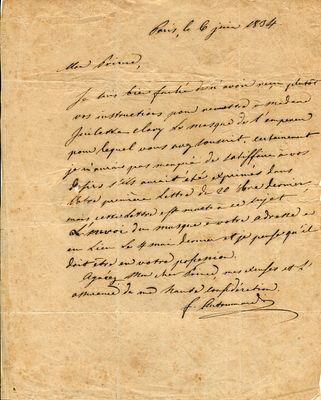 Paris, le 6 juin 1834
Mon Prince,
Je suis bien fâché de n'avoir reçu plutôt
vos instructions pour remettre à madame
Clary le masque de l'empereur
pour lequel vous avez souscrit, certainement
je n'aurais pas manqué de satisfaire à vos
désirs s'ils avaient été exprimés dans
votre première lettre du 20 dernier
mais cette lettre est muette à ce sujet
L'envoi du masque à votre adresse a
eu lieu le 4 mai dernier et je pense qu'il
doit être en votre possession.
Agréez Mon cher Prince mes et l'
assurance de ma haute considération.
f. Antommarchi